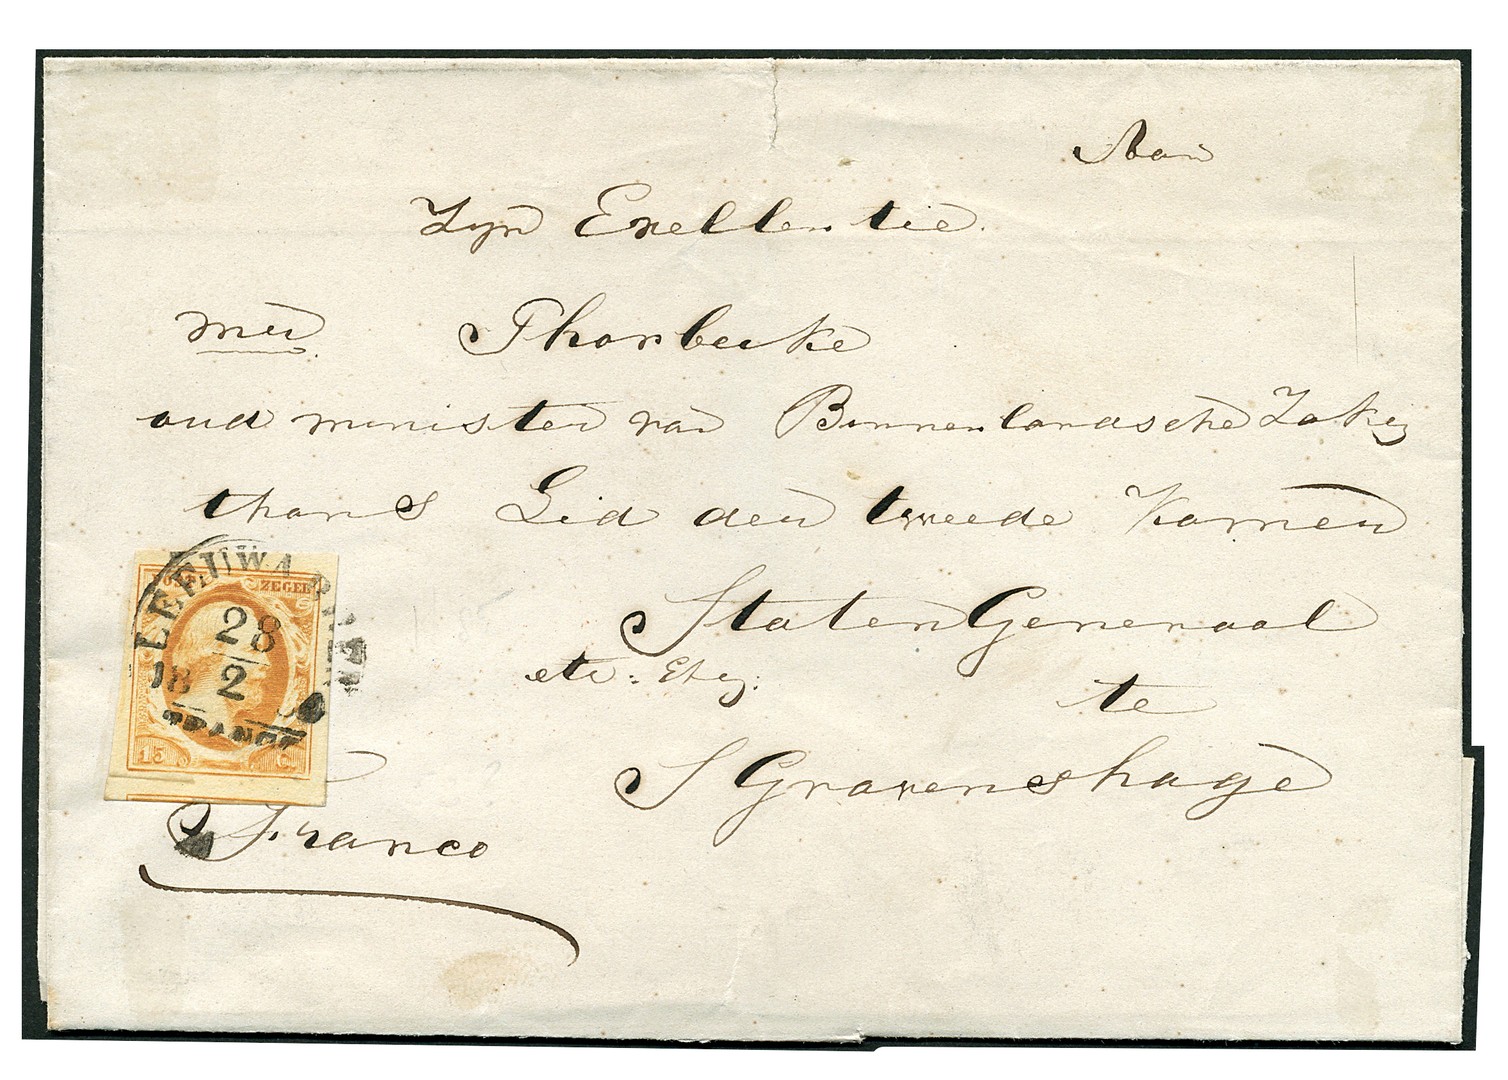 Aan
Zyn Exellentie
mr Thorbecke
oud minister van Binnenlandsche Zaken
thans Lid der tweede Kamer
Staten Generaal
etc: Etc:
te
S Gravenshage
Franco
POST ZEGEL
15 C
LEEUWARDEN
28
18 2
FRANCO